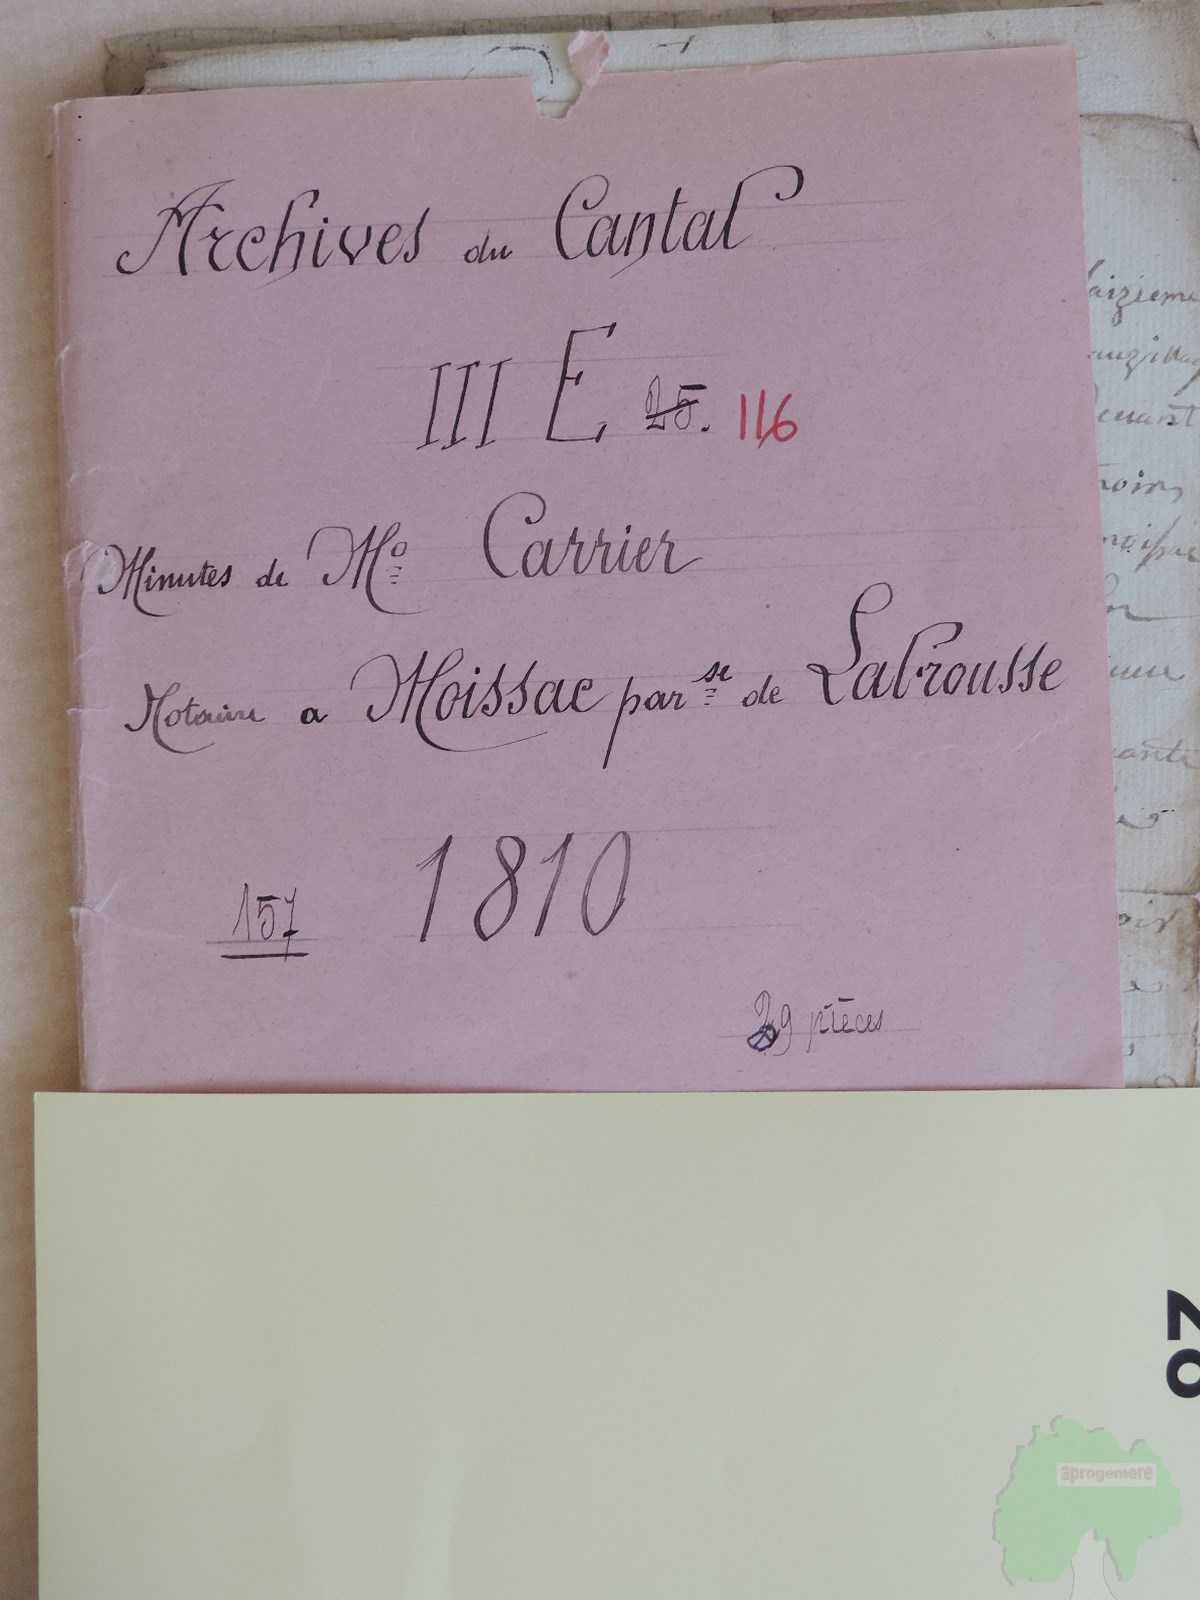 Archives du Cantal
III E 25. 116
Minutes de Me Carrier
Notaire a Moissac par se de Labrousse
1810
157
29 pièces
aizieme
noir
26
aprogemere